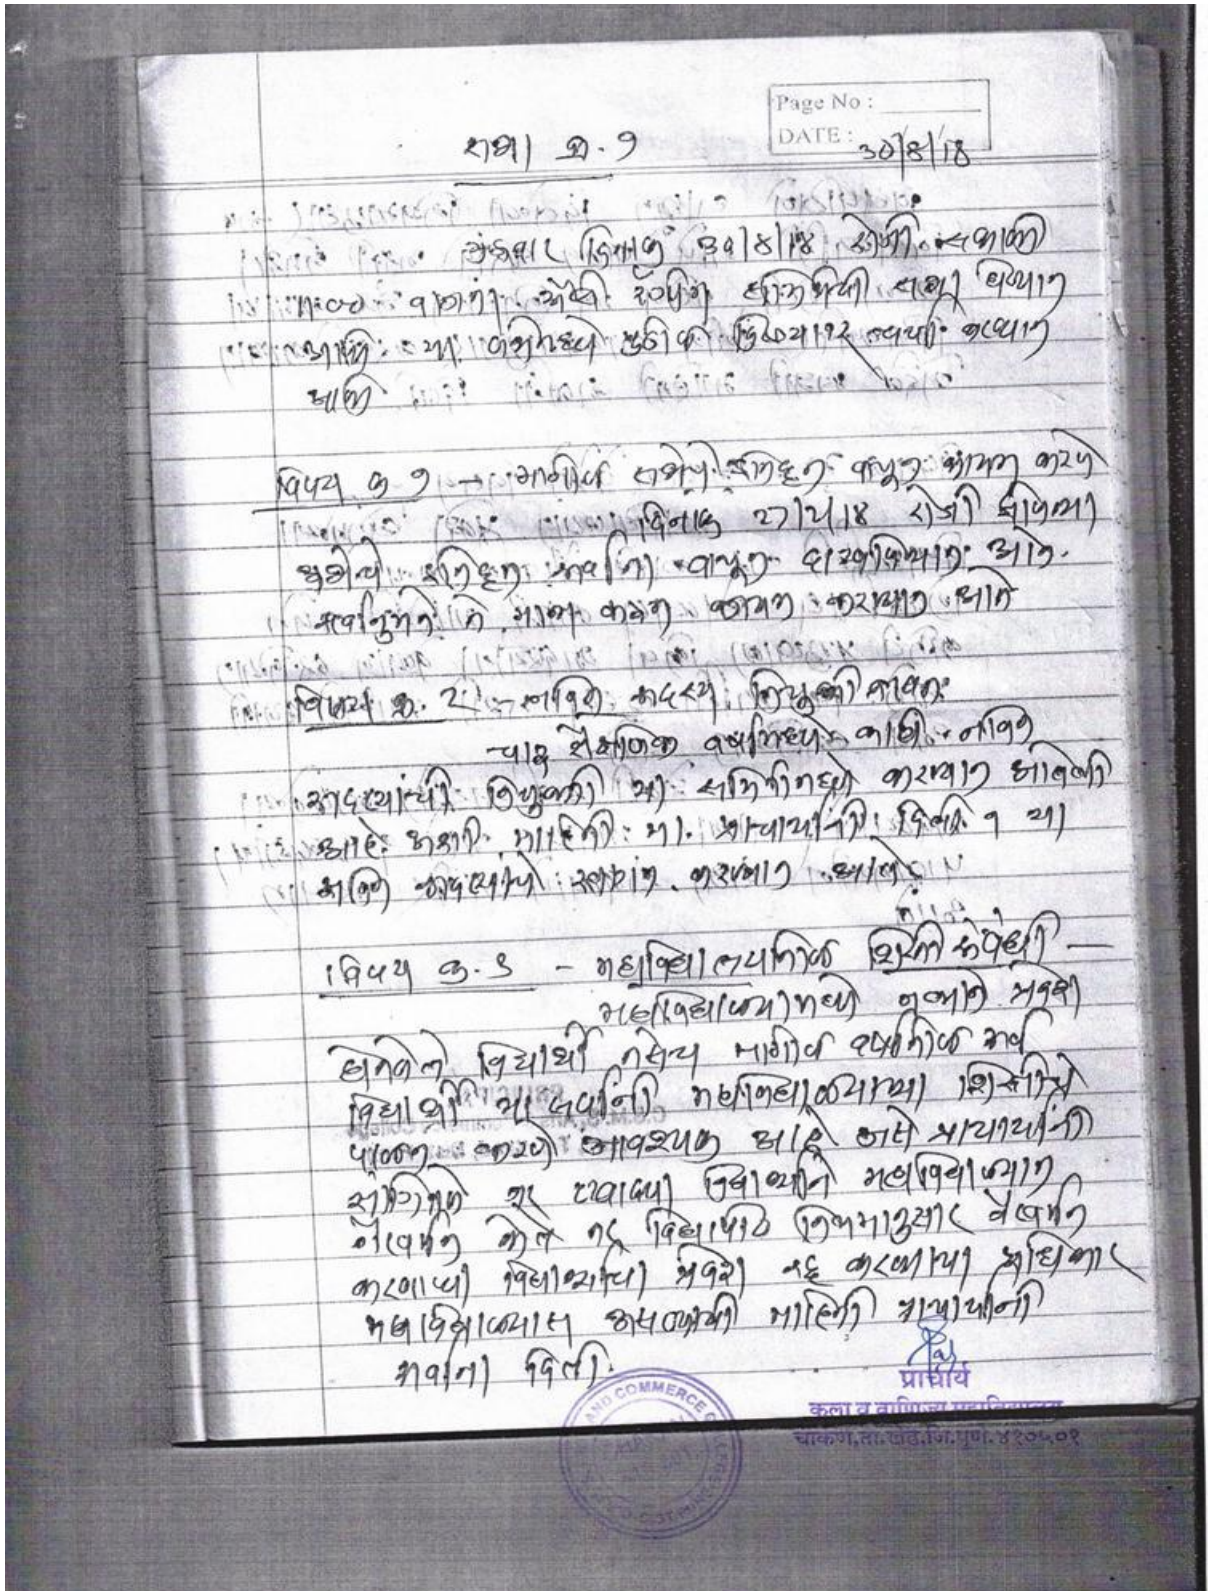 Page No :
DATE : 30/8/18
सभा क्र. १
दिनांक ३०/८/१८ रोजी सकाळी
वाजता अँटी रॅगिंग समितीची सभा घेण्यात
आली. या सभेमध्ये पुढील विषयावर चर्चा करण्यात
आली
विषय क्र १ - मागील सभेचे इतिवृत्त वाचून कायम करणे
दिनांक २७/२/१८ रोजी झालेल्या
सभेचे इतिवृत्त सर्वांना वाचून दाखविण्यात आले.
सर्वानुमते ते मान्य करून कायम करण्यात आले
विषय क्र. २ - नवीन सदस्य नियुक्ती
चालू शैक्षणिक वर्षामध्ये काही नवीन
सदस्यांची नियुक्ती या समितीमध्ये करण्यात आलेली
आहे अशी माहिती मा. प्राचार्यांनी दिली व या
नवीन सदस्यांचे स्वागत करण्यात आले
विषय क्र. ३ - महाविद्यालयातील शिस्ती संबंधी -
महाविद्यालयामध्ये नव्याने प्रवेश
घेतलेले विद्यार्थी तसेच मागील वर्षातील सर्व
विद्यार्थी या सर्वांनी महाविद्यालयाच्या शिस्तीचे
पालन करणे आवश्यक आहे असे प्राचार्यांनी
सांगितले जर एखाद्या विद्यार्थ्याने महाविद्यालयात
गैरवर्तन केले तर विद्यापीठ नियमानुसार गैरवर्तन
करणाऱ्या विद्यार्थ्याचा प्रवेश रद्द करण्याचा अधिकार
महाविद्यालयास असल्याची माहिती प्राचार्यांनी
सर्वांना दिली.
प्राचार्य
कला व वाणिज्य महाविद्यालय
चाकण,ता.खेड,जि.पुणे.४१०५०१
AND COMMERCE